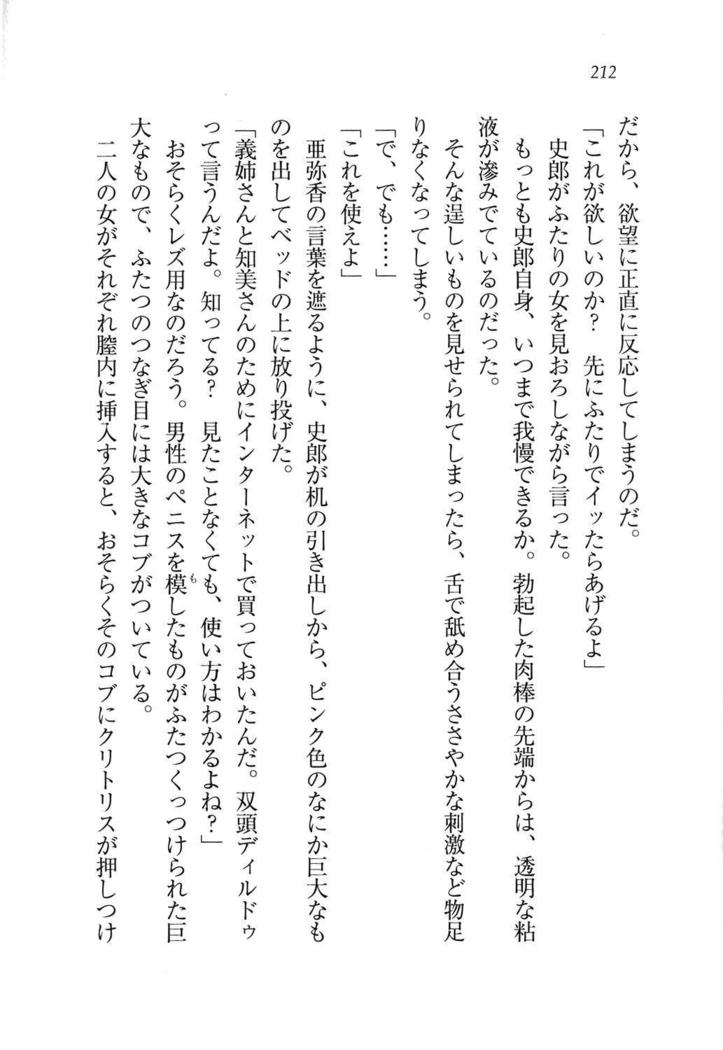 212
だから、欲望に正直に反応してしまうのだ。
「これが欲しいのか？　先にふたりでイッたらあげるよ」
史郎がふたりの女を見おろしながら言った。
もっとも史郎自身、いつまで我慢できるか。勃起した肉棒の先端からは、透明な粘
液が滲みでているのだった。
そんな逞しいものを見せられてしまったら、舌で舐め合うささやかな刺激など物足
りなくなってしまう。
「で、でも……」
「これを使えよ」
亜弥香の言葉を遮るように、史郎が机の引き出しから、ピンク色のなにか巨大なも
のを出してベッドの上に放り投げた。
「義姉さんと知美さんのためにインターネットで買っておいたんだ。双頭ディルドゥ
って言うんだよ。知ってる？　見たことなくても、使い方はわかるよね？」
おそらくレズ用なのだろう。男性のペニスを模も したものがふたつくっつけられた巨
大なもので、ふたつのつなぎ目には大きなコブがついている。
二人の女がそれぞれ膣内に挿入すると、おそらくそのコブにクリトリスが押しつけ